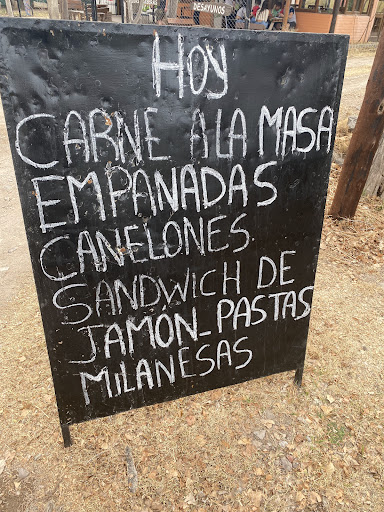 DESAYUNOS
Hoy
CARNE A LA MASA
EMPANADAS
CANELONES.
SANDWICH DE
JAMÓN_PASTAS
MILANESAS